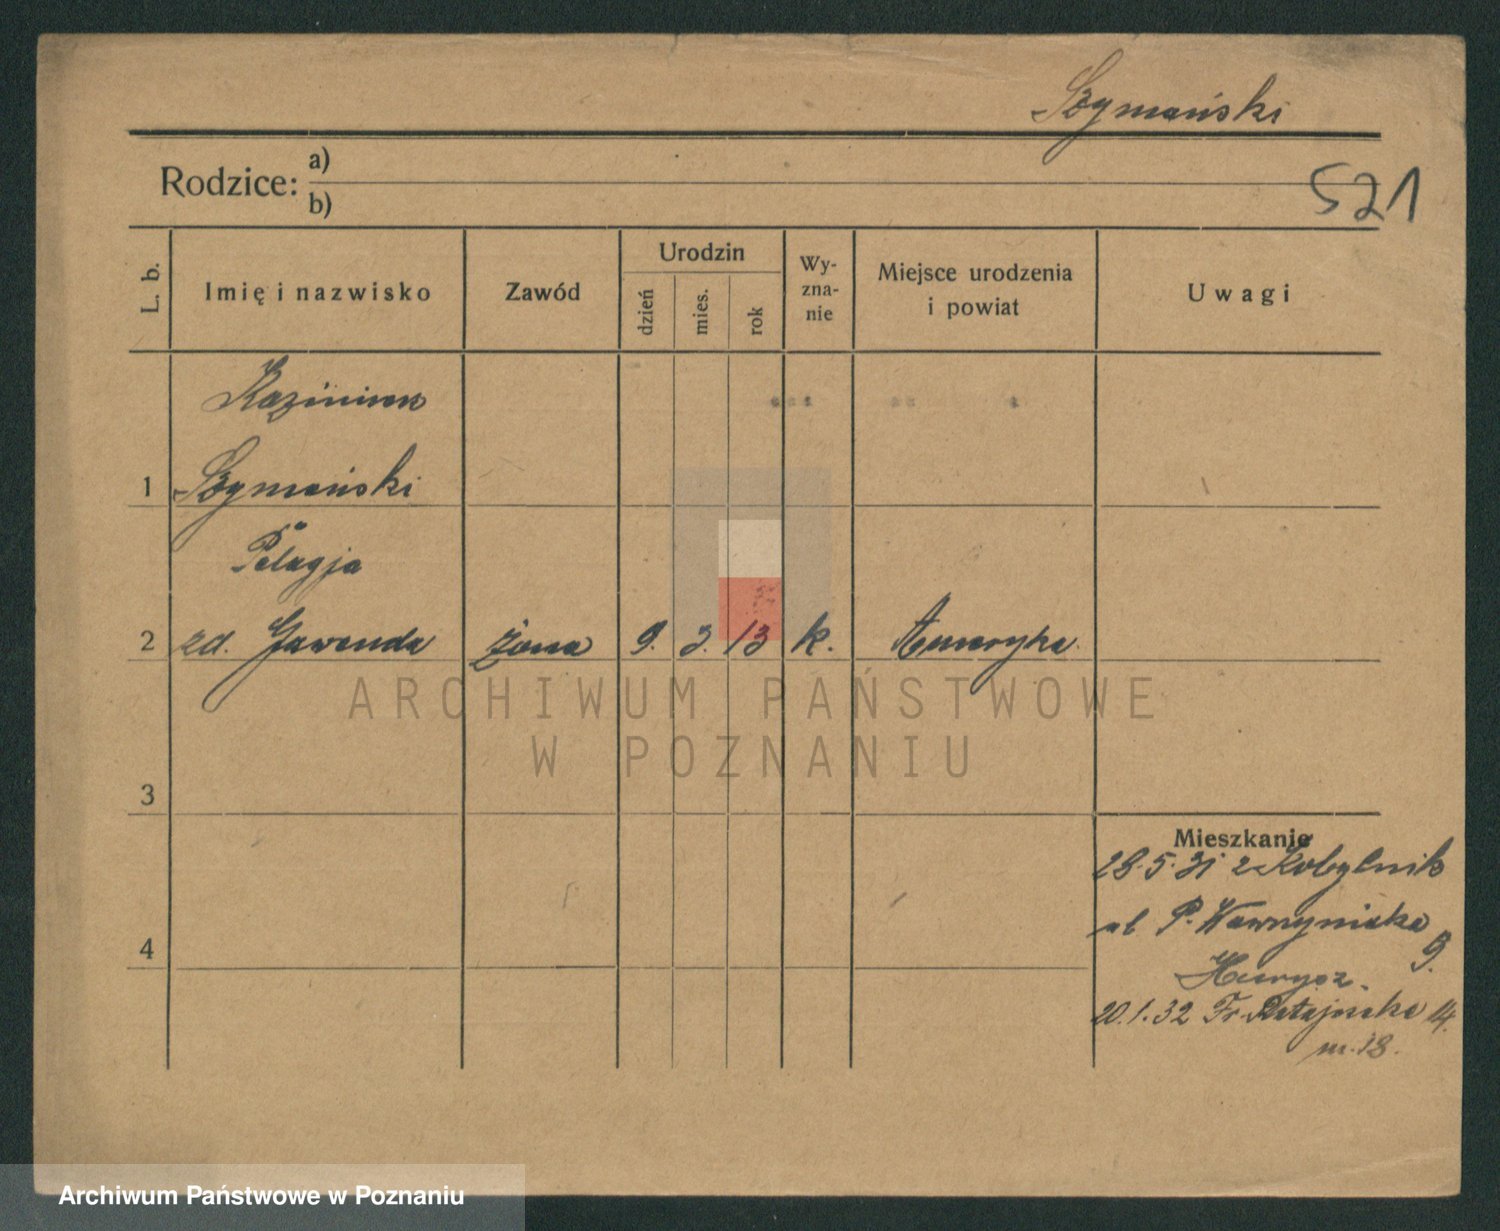 Szymański
Rodzice: a)
b)
521
L. b.
Imię i nazwisko
Zawód
Urodzin
dzień
mies.
rok
Wy-
zna-
nie
Miejsce urodzenia
i powiat
Uwagi
Kazimierz
1 Szymański
Pelagja
2 zd. Gawenda żona 9. 3. 13 k. Ameryka.
ARCHIWUM PAŃSTWOWE
W POZNANIU
3
Mieszkanie
28.5.31 z Kobylnik
ul. P. Wawrzyniaka
4
9.
20.1.32 Fr. Ratajczaka 14.
m. 18.
Archiwum Państwowe w Poznaniu